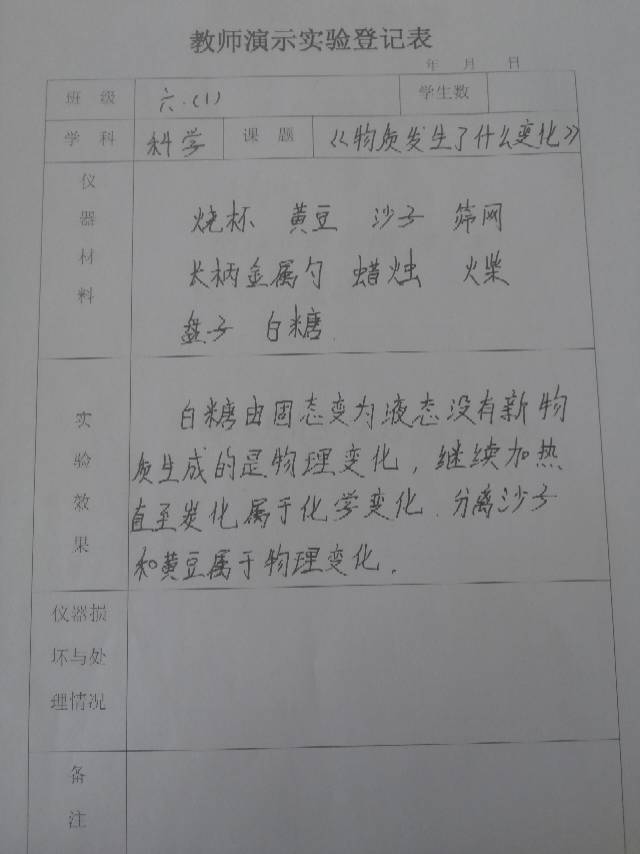 教师演示实验登记表
年 月 日
班 级 六.(1) 学生数
学 科 科学 课 题 《物质发生了什么变化》
仪器材料
烧杯 黄豆 沙子 筛网
长柄金属勺 蜡烛 火柴
盘子 白糖
实验效果
白糖由固态变为液态没有新物
质生成的是物理变化，继续加热
直至炭化属于化学变化.分离沙子
和黄豆属于物理变化.
仪器损
坏与处
理情况
备注